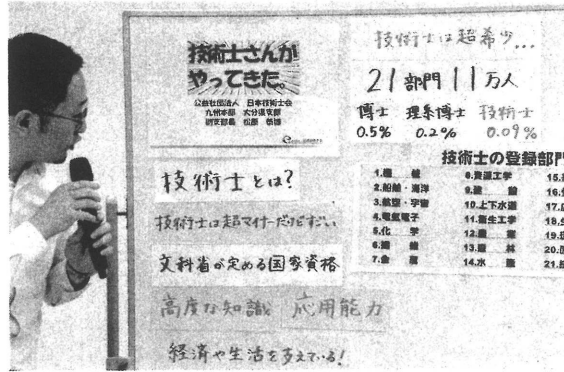 技術士さんが
やってきた。
公益社団法人 日本技術士会
九州本部 大分県支部
技術士とは?
技術士は超マイナーだけどすごい
文科省が定める国家資格
高度な知識 応用能力
経済や生活を支えている!
技術士は超希少...
21部門11万人
博士 理系博士 技術士
0.5% 0.2% 0.09%
技術士の登録部門
1.機 械
2.船舶・海洋
3.航空・宇宙
4.電気電子
5.化 学
6.繊 維
7.金 属
8.資源工学
9.建 設
10.上下水道
11.衛生工学
12.農 業
13.森 林
14.水 産
15.
16.
17.
18.
19.
20.
21.